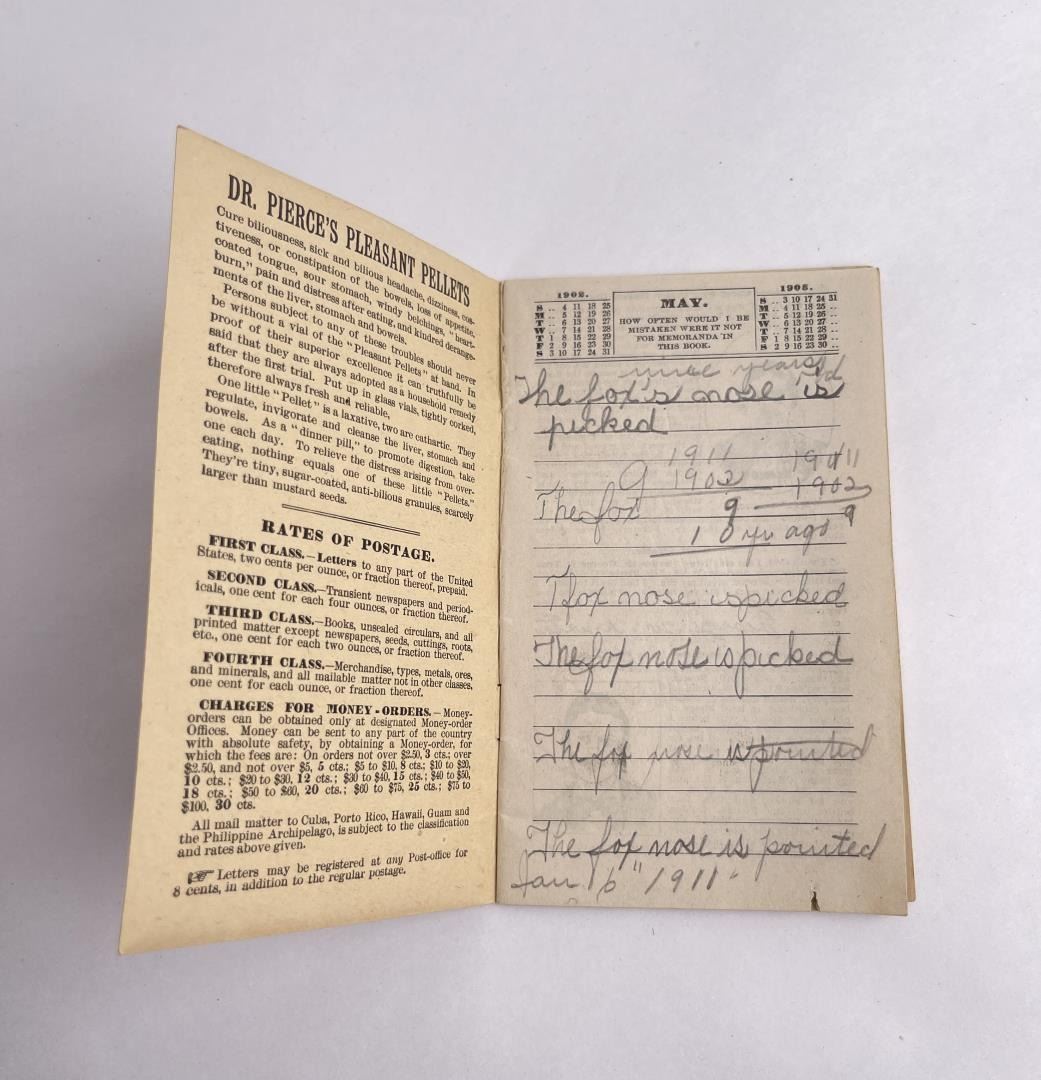 DR. PIERCE'S PLEASANT PELLETS
Cure biliousness, sick and bilious headache, dizziness, cos-
tiveness, or constipation of the bowels, loss of appetite,
coated tongue, sour stomach, windy belchings, "heart-
burn," pain and distress after eating, and kindred derange-
ments of the liver, stomach and bowels.
Persons subject to any of these troubles should never
be without a vial of the "Pleasant Pellets" at hand. In
proof of their superior excellence it can truthfully be
said that they are always adopted as a household remedy
after the first trial. Put up in glass vials, tightly corked,
therefore always fresh and reliable.
One little "Pellet" is a laxative, two are cathartic. They
regulate, invigorate and cleanse the liver, stomach and
bowels. As a "dinner pill," to promote digestion, take
one each day. To relieve the distress arising from over-
eating, nothing equals one of these little "Pellets."
They're tiny, sugar-coated, anti-bilious granules, scarcely
larger than mustard seeds.
RATES OF POSTAGE.
FIRST CLASS.—Letters to any part of the United
States, two cents per ounce, or fraction thereof, prepaid.
SECOND CLASS.—Transient newspapers and period-
icals, one cent for each four ounces, or fraction thereof.
THIRD CLASS.—Books, unsealed circulars, and all
printed matter except newspapers, seeds, cuttings, roots,
etc., one cent for each two ounces, or fraction thereof.
FOURTH CLASS.—Merchandise, types, metals, ores,
and minerals, and all mailable matter not in other classes,
one cent for each ounce, or fraction thereof.
CHARGES FOR MONEY-ORDERS.—Money-
orders can be obtained only at designated Money-order
Offices. Money can be sent to any part of the country
with absolute safety, by obtaining a Money-order, for
which the fees are: On orders not over $2.50, 3 cts.; over
$2.50, and not over $5, 5 cts.; $5 to $10, 8 cts.; $10 to $20,
10 cts.; $20 to $30, 12 cts.; $30 to $40, 15 cts.; $40 to $50,
18 cts.; $50 to $60, 20 cts.; $60 to $75, 25 cts.; $75 to
$100, 30 cts.
All mail matter to Cuba, Porto Rico, Hawaii, Guam and
the Philippine Archipelago, is subject to the classification
and rates above given.
Letters may be registered at any Post-office for
8 cents, in addition to the regular postage.
1902.
S .. 4 11 18 25
M .. 5 12 19 26
T .. 6 13 20 27
W .. 7 14 21 28
T 1 8 15 22 29
F 2 9 16 23 30
S 3 10 17 24 31
MAY.
HOW OFTEN WOULD I BE
MISTAKEN WERE IT NOT
FOR MEMORANDA IN
THIS BOOK.
1903.
S .. 3 10 17 24 31
M .. 4 11 18 25 ..
T .. 5 12 19 26 ..
W .. 6 13 20 27 ..
T .. 7 14 21 28 ..
F 1 8 15 22 29 ..
S 2 9 16 23 30 ..
years old
The fox's nose is
picked
1911 1911
9 1902 1902
The fox 9 9
10 yr ago
T fox nose is picked
The fox nose is picked
The fox nose is pointed
The fox nose is pointed
Jan 16 "1911"